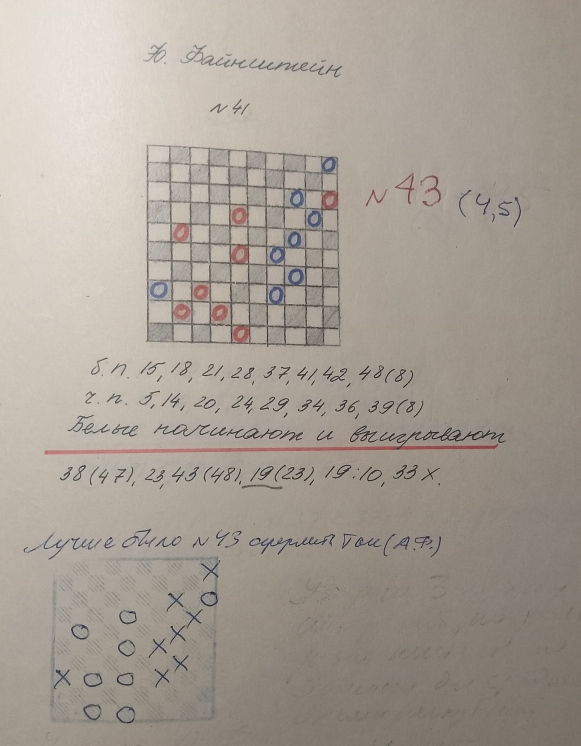 Ю. Файнштейн
№41
№43 (4,5)
б.п. 15, 18, 21, 28, 37, 41, 42, 48 (8)
ч.п. 5, 14, 20, 24, 29, 34, 36, 39 (8)
Белые начинают и выигрывают
38 (47), 23, 43 (48), 19 (23), 19:10, 33 X.
Лучше было №43 оформить так (А.Ф.)